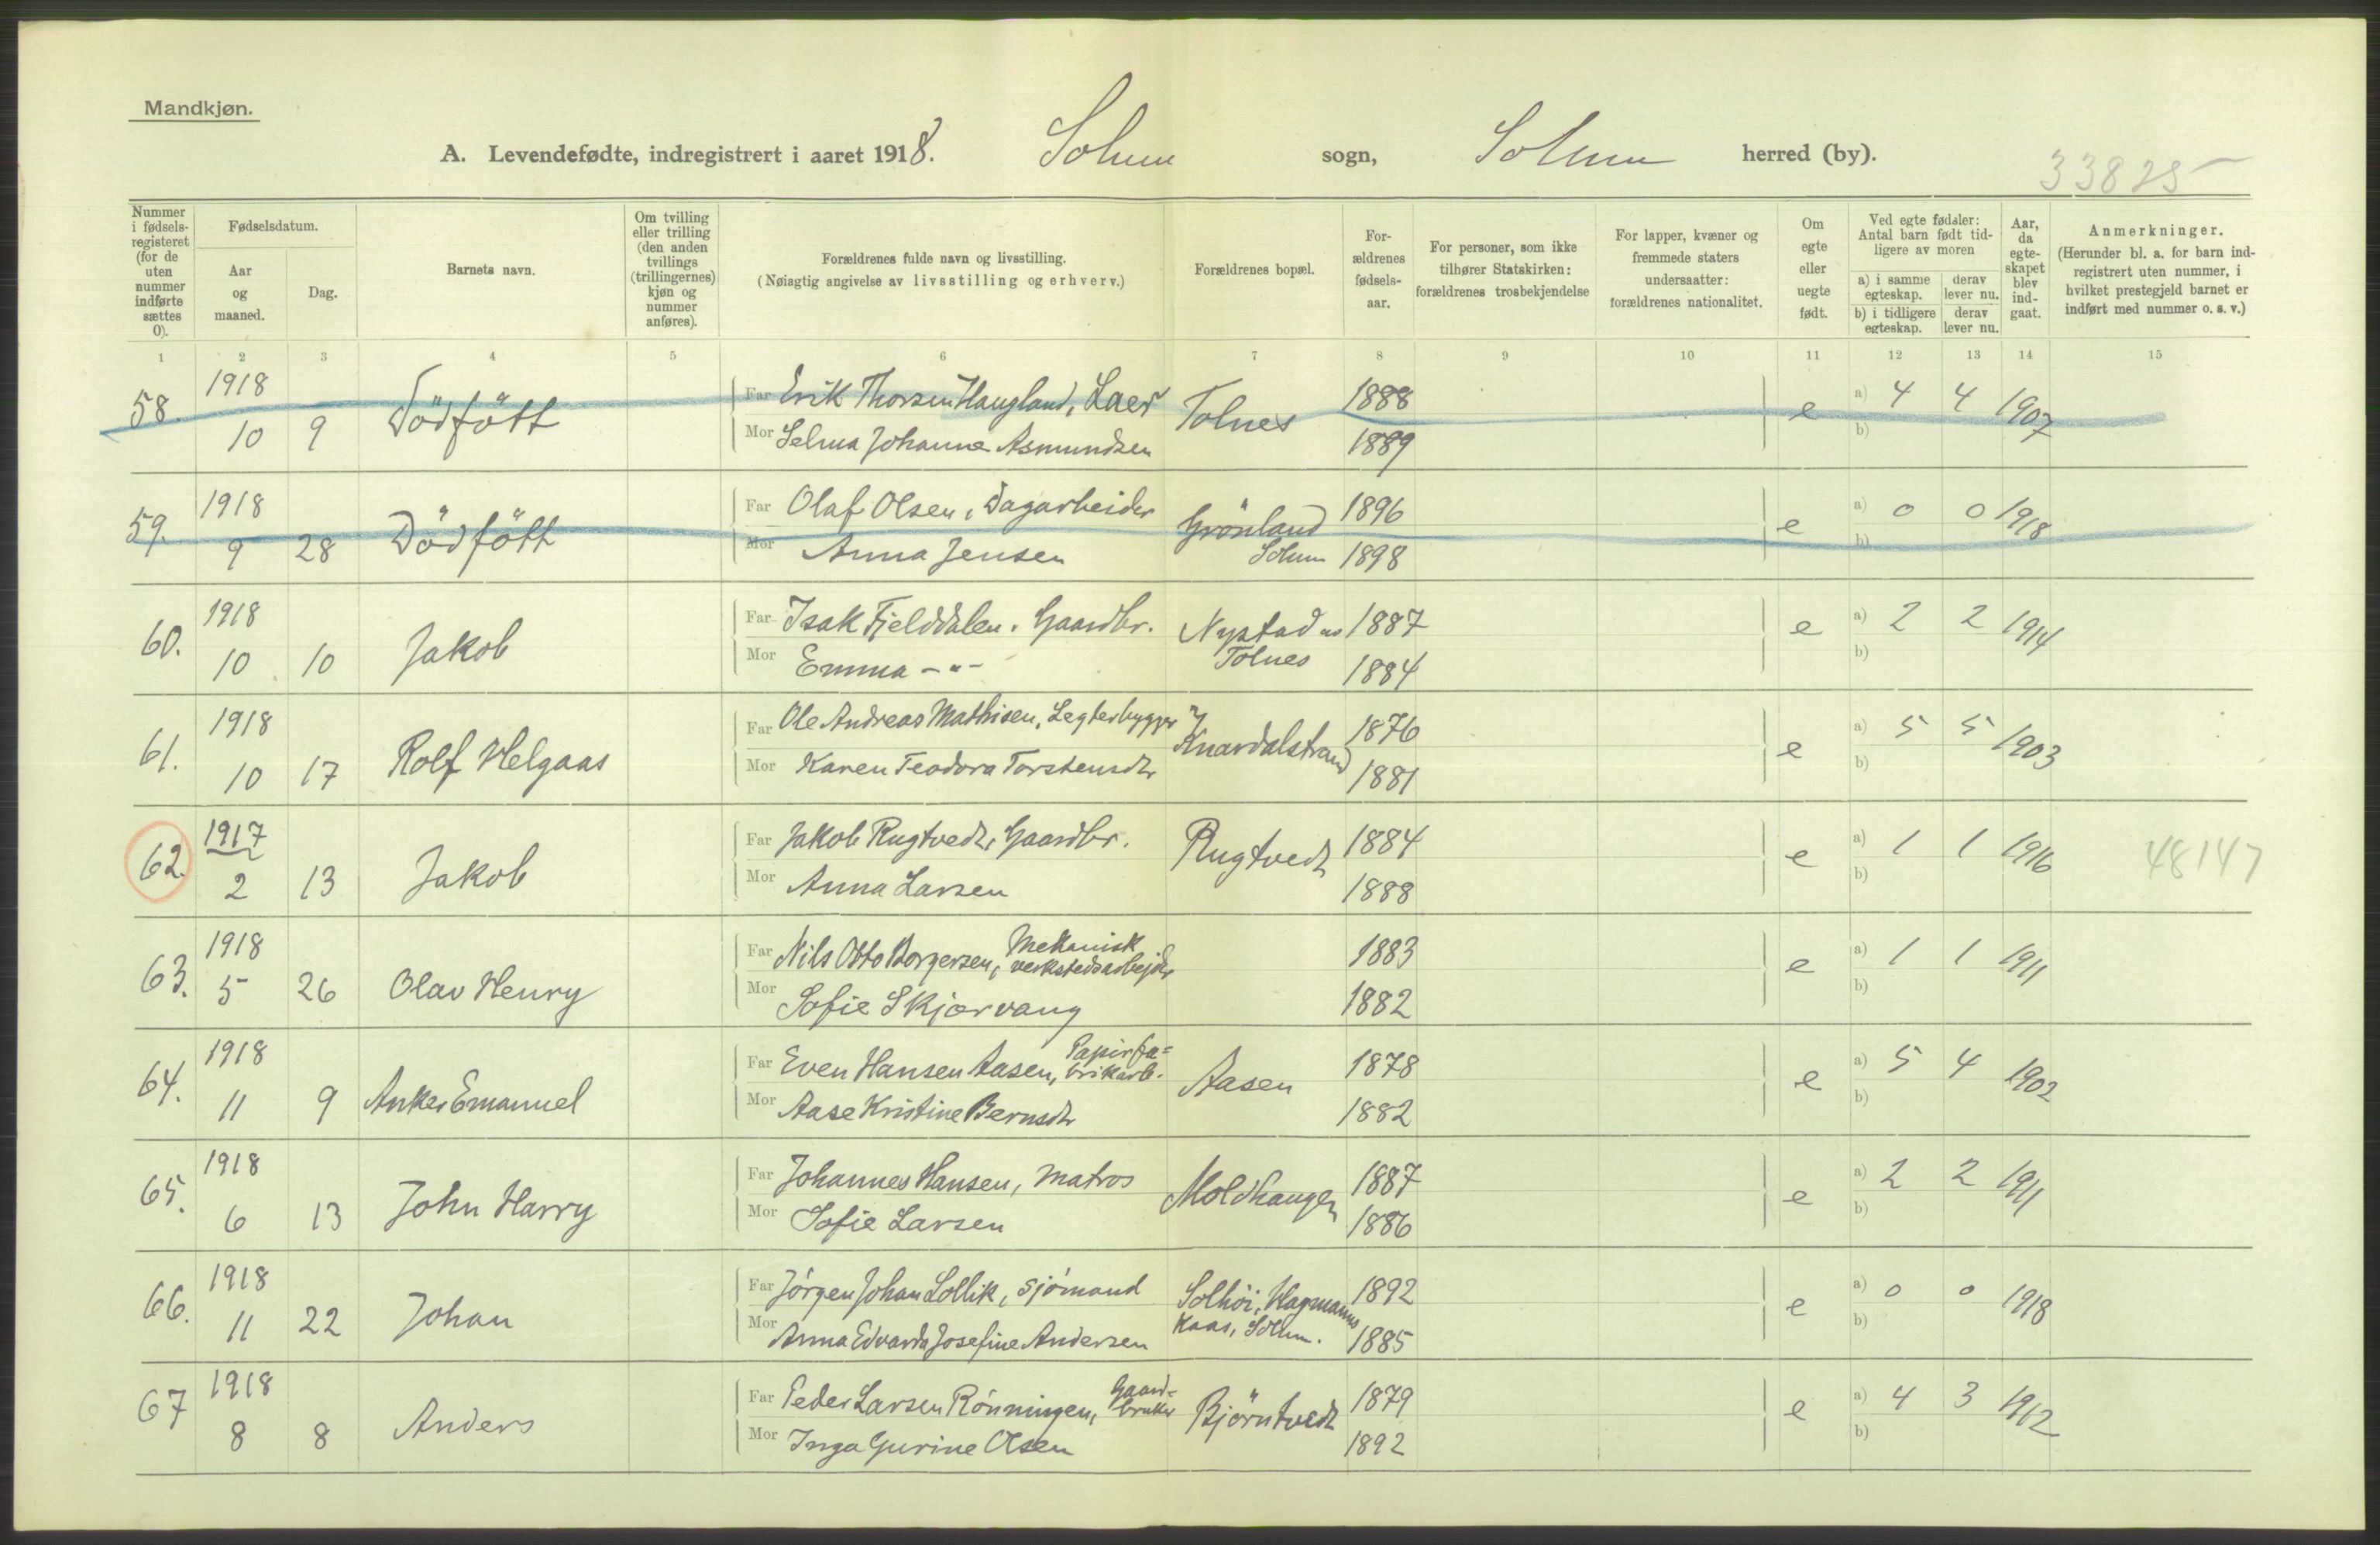 Mandkjøn.
A. Levendefødte, indregistrert i aaret 1918. Solum sogn, Solum herred (by).
33825
Nummer i fødsels-registeret (for de uten nummer indførte sættes 0).
Fødselsdatum.
Aar og maaned.
Dag.
Barnets navn.
Om tvilling eller trilling (den anden tvillings (trillingernes) kjøn og nummer anføres).
Forældrenes fulde navn og livsstilling.
(Nøiagtig angivelse av livsstilling og erhverv.)
Forældrenes bopæl.
For-ældrenes fødsels-aar.
For personer, som ikke tilhører Statskirken: forældrenes trosbekjendelse
For lapper, kvæner og fremmede staters undersaatter: forældrenes nationalitet.
Om egte eller uegte født.
Ved egte fødsler: Antal barn født tid-ligere av moren
a) i samme egteskap. derav lever nu.
b) i tidligere egteskap. derav lever nu.
Aar, da egte-skapet blev ind-gaat.
Anmerkninger.
(Herunder bl. a. for barn ind-registrert uten nummer, i hvilket prestegjeld barnet er indført med nummer o. s. v.)
1 2 3 4 5 6 7 8 9 10 11 12 13 14 15
58. 1918 10 9 Dödfött Far Erik Thorsen Haugland, Laer Tolnes 1888 e a) 4 4 1907
Mor Selma Johanne Asmundsen 1889 b)
59. 1918 9 28 Dödfött Far Olaf Olsen, Dagarbeider Grönland 1896 e a) 0 0 1918
Mor Anna Jensen Solum 1898 b)
60. 1918 10 10 Jakob Far Isak Fjelddalen. Gaardbr. Nystad 1887 e a) 2 2 1914
Mor Emma -"- Tolnes 1884 b)
61. 1918 10 17 Rolf Helgaas Far Ole Andreas Mathisen, Legterbygger Knardalstrand 1876 e a) 5 5 1903
Mor Karen Teodora Torstensdtr 1881 b)
62. 1917 2 13 Jakob Far Jakob Rugtvedt, Gaardbr. Rugtvedt 1884 e a) 1 1 1916 48147
Mor Anna Larsen 1888 b)
63. 1918 5 26 Olav Henry Far Nils Otto Borgersen, Mekanisk verkstedsarbejder 1883 e a) 1 1 1911
Mor Sofie Skjorvang 1882 b)
64. 1918 11 9 Anker Emanuel Far Even Hansen Aasen, Papirfa=brikarb. Aasen 1878 e a) 5 4 1902
Mor Aase Kristine Bernsdtr 1882 b)
65. 1918 6 13 John Harry Far Johannes Hansen, Matros Moldhaugen 1887 e a) 2 2 1911
Mor Sofie Larsen 1886 b)
66. 1918 11 22 Johan Far Jörgen Johan Lollik, Sjömand Solhöi, Hagmanns 1892 e a) 0 0 1918
Mor Anna Edvarda Josefine Andersen Kaas, Solum. 1885 b)
67 1918 8 8 Anders Far Peder Larsen Rönningen, Gaard=bruker Björntvedt 1879 e a) 4 3 1912
Mor Inga Gurine Olsen 1892 b)